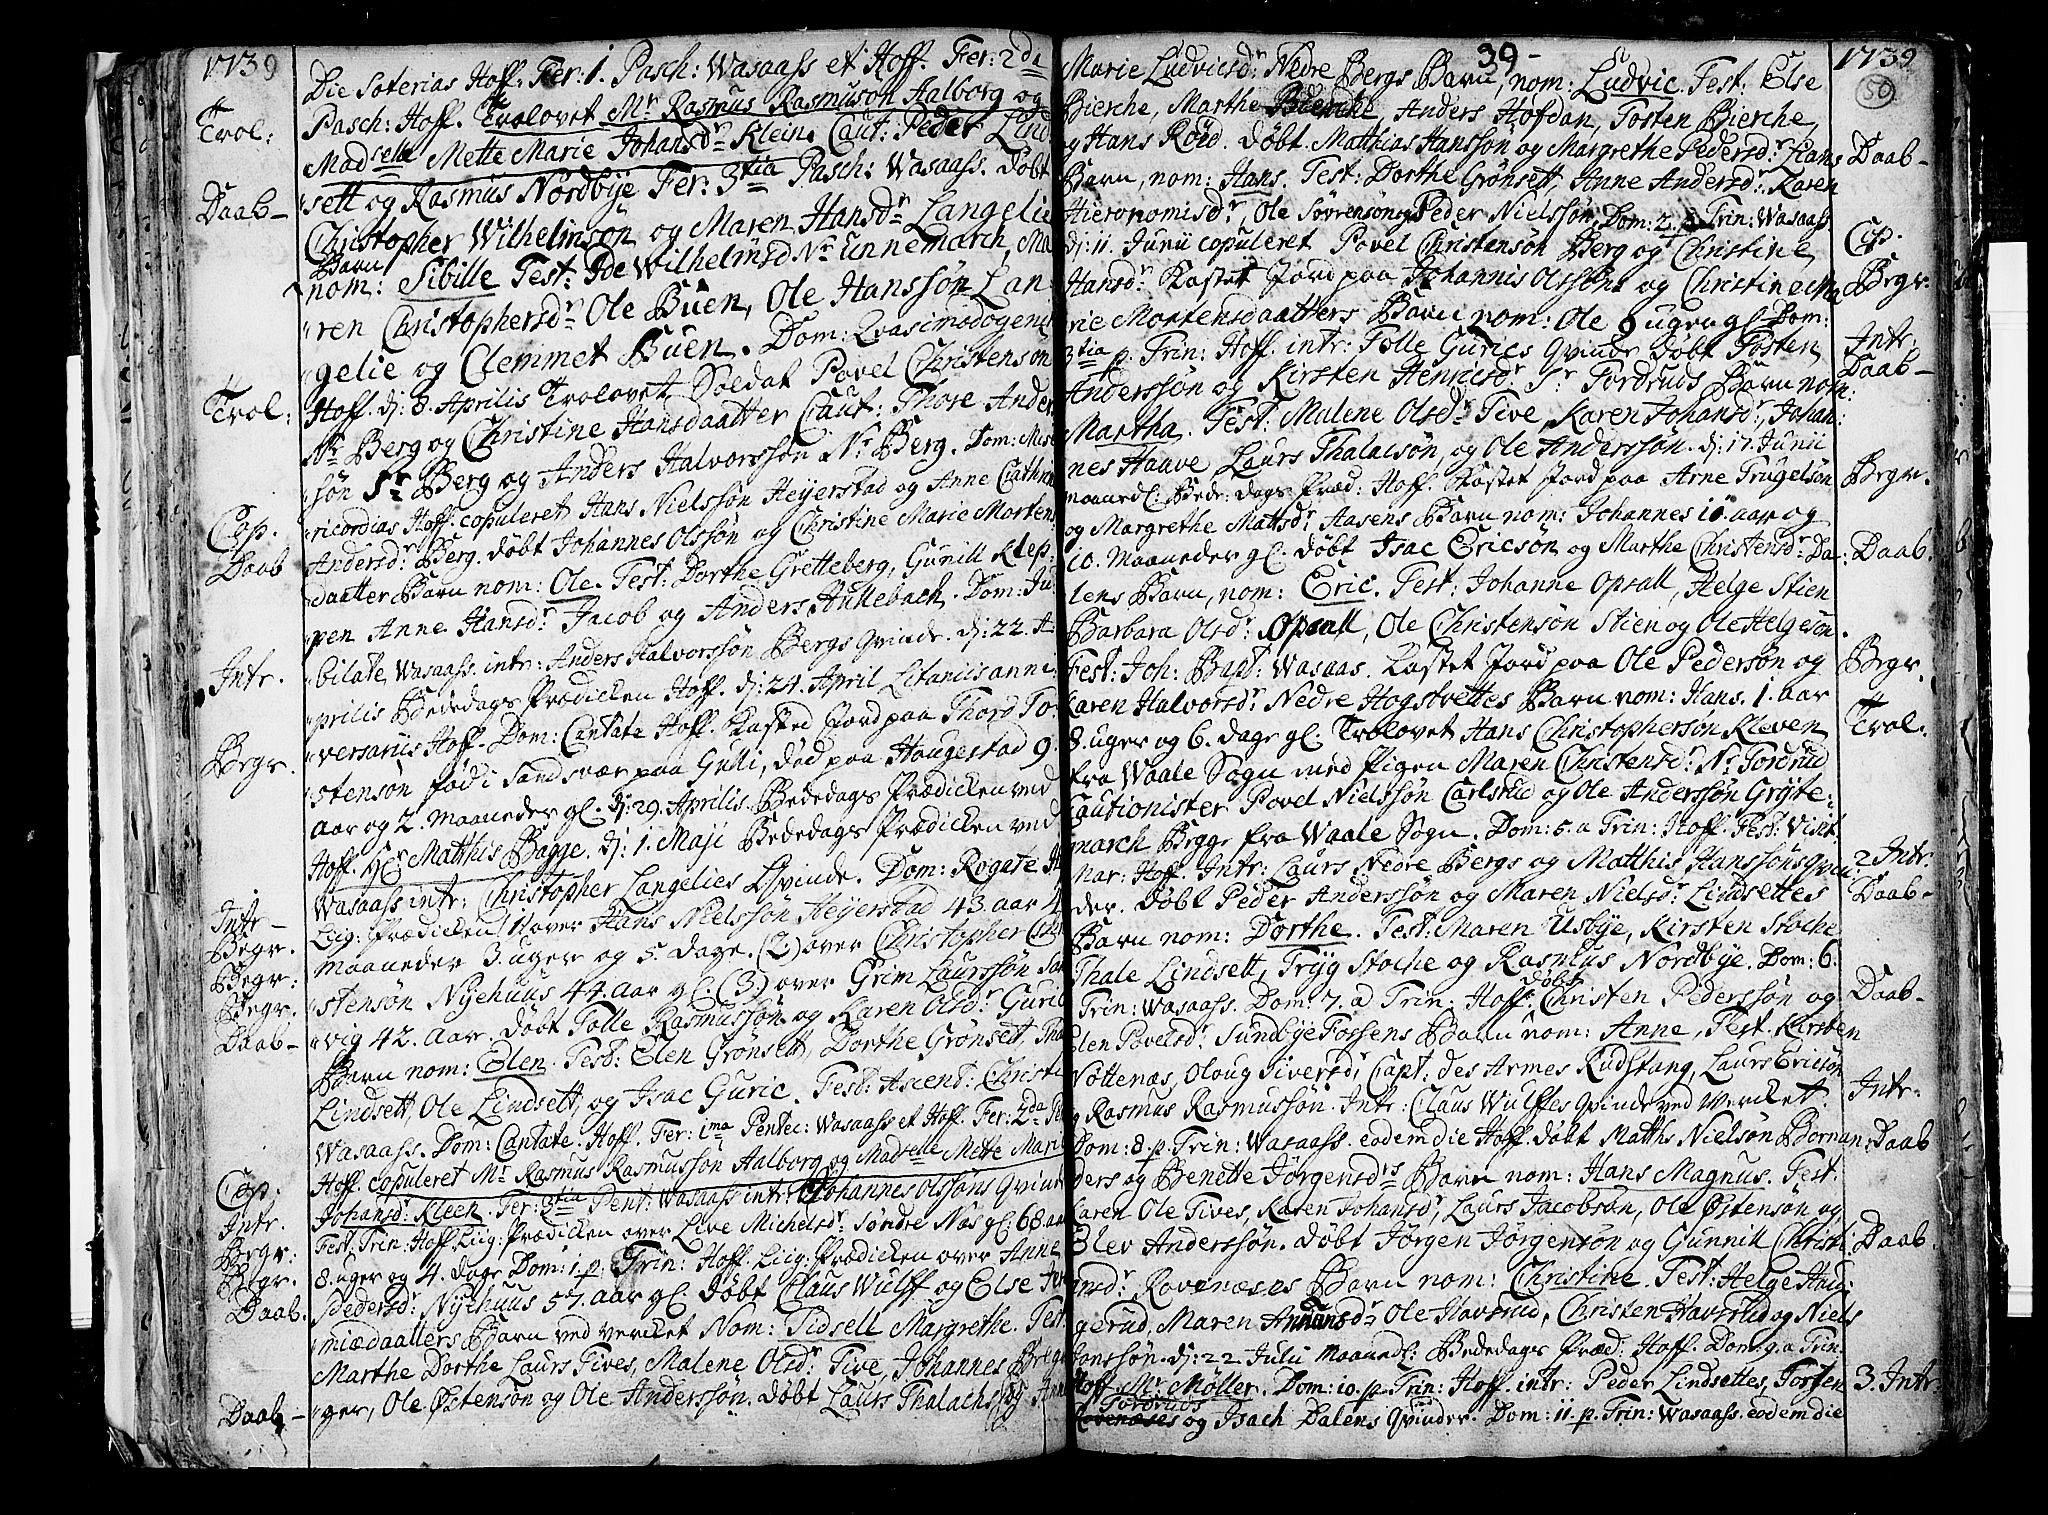 1739
Die Soterias Hoff. Fer: 1. Pasch: Wasaass et Hoff. Fer: 2da
Trol: Pasch: Hoff. Trolovet Mr Rasmus Rasmuson Aalborg og
Madselle Mette Marie Johansdr Klein. Caut: Peder Lind
Daab- sett og Rasmus Nordbye Fer: 3tia Pasch: Wasaass. Døbt
Christopher Wilhelmsøn og Maren Hansdr Langelie
Barn
nom: Sibille Test: Ide Wilhelmsd Nr Unnemarch, Ma
ren Christophersdr Ole Buen, Ole Hanssøn Lan-
gelie og Clemmet Buen. Dom: Qvasimodogeniti
Trol: Hoff. dj: 8. Aprilis Trolovet Soldat Povel Christensøn
Nr Berg og Christine Hansdaatter Caut: Thore Ander
søn Sr Berg og Anders Halvorssøn Nr Berg. Dom: Mise
Cop. ricordias Hoff. copuleret Hans Nielssøn Heyerstad og Anne Cathrine
Daab Andersdr Berg. døbt Johannes Olssøn og Christine Marie Mortens
daatter Barn nom: Ole. Test: Dorthe Gretteberg, Gunill Klep:
pen Anne Hansdr Jacob og Anders Hullebach. Dom: Ju
Intr. bilate, Wasaass. intr: Anders Halvorssøn Bergs Qvinde. dj: 22. A
prilis Bededags Prædicken Hoff. dj: 24. April Litaniis anni
versariis Hoff. Dom: Cantate Hoff. Kasted Jord paa Thord To
Begr. stensøn fød i Sandsvær paa Gulli, død paa Haugestad 9.
Aar og 2. Maaneder gl. dj: 29. Aprilis Bededags Prædicken ved
Hoff. Hr Matthis Bagge. dj: 1. Maji Bededags Prædicken ved
Intr- Wasaass intr: Christopher Langelies Qvinde. Dom: Rogate H
Begr. Liig: Prædicken 1) over Hans Nielssøn Heyerstad 43. aar 4
Begr: Maaneder 3. uger og 5. Dage. (2.) over Christopher Chri
Begr. stensøn Nyehuus 44. Aar gl. (3.) over Grim Laurssøn San
Daab- vig 42. Aar. døbt Tolle Rasmussøn og Karen Olsdr Guric
Barn nom: Elen. Test: Elen Grønsett, Dorthe Grønsett, Tha
Lindsett, Ole Lindsett, og Isac Guric. Fest: Ascent: Christi
Wasaass. Dom: Cantate. Hoff. Fer: 1ma Pentec: Wasaass et Hoff. Fer: 2da Pe
Cop. Hoff. copuleret Mr Rasmus Rasmussøn Aalborg og Madselle Mette Marie
Intr. Johansd: Kleen. Fer: 3tia Pent: Wasaass intr: Johannes Olssøns Qvinde
Begr: Fest. Trin: Hoff Liig: Prædicken over Live Michelsdr Søndre Næs gl. 68 aar
Begr. 8. uger og 4. dage Dom: 1. p. Trin: Hoff. Liig: Prædicken over Anne
Daab. Pedersdr Nyehuus 57. aar gl. døbt Claus Wulff og Else Jere
miædaatters Barn ved Vercket Nom: Tidsell Margrethe. Test.
Marthe Dorthe Laurs Tives, Malene Olsdr: Tive, Johannes Brege
Daab- ger, Ole Østensøn og Ole Anderssøn. døbt Laurs Thalachsøn og Anne
39-
1739
50
Marie Ludvicsdr Nedre Bergs Barn, nom: Ludvic. Test: Else
Bierche, Marthe Bierche, Anders Hofdan, Tosten Bierche,
og Hans Roed. døbt. Matthias Hanssøn og Margrethe Pedersdr Hans Daab-
Barn, nom: Hans. Test: Dorthe Grønsett, Anne Andersdr: Karen
Hieronomisdr, Ole Sørensøn og Peder Nielssøn. Dom: 2. p. Trin: Wasaass
dj: 11. Junii copuleret Povel Christensøn Berg og Christine Cop.
Hansdr Kastet Jord paa Johannis Olssøns og Christine Ma Begr.
rie Mortensdaatters Barn nom: Ole 6 uger gl. Dom:
3tia p. Trin: Hoff. intr: Tolle Gurics Qvinde døbt Tosten Intr.
Anderssøn og Kirsten Henricsdr Sr Tordruds Barn nom: Daab-
Martha. Test: Malene Olsdr Tive, Karen Johansdr, Johan:
nes Haave Laurs Thalacsøn, og Ole Anderssøn. dj: 17. Junii
maanedl: Bede: dags Præd: Hoff. Kastet Jord paa Arne Trugelsøn Begr.
og Margrethe Mattsdr Aasens Barn nom: Johannes 10. aar og
10. Maaneder gl. døbt Isac Ericsøn og Marthe Christensdr Da: Daab.
lens Barn, nom: Eric. Test: Johanne Opsall, Helge Stien
Barbara Olsdr: Opsall, Ole Christensøn Stien og Ole Helgesøn.
Fest: Joh: Bapt: Wasaas. Kastet Jord paa Ole Pedersøn og Begr.
Karen Halvorsdr Nedre Hogstvettes Barn nom: Hans. 1. aar
8. uger og 6. dage gl. Trolovet Hans Christophersøn Kleven Trol:
fra Waale Sogn med Pigen Maren Christensdr Nr Tordrud
Cautionister Povel Nielssøn Carlsrud og Ole Anderssøn Gryte:
march Begge fra Waale Sogn. Dom: 5. a Trin: Hoff. Fest: Visit.
Mar: Hoff. Intr: Laurs Nedre Bergs og Matthis Hanssøns Qvin: 2. Intr.
der. døbt Peder Anderssøn og Maren Nielsdr Lindsettes Daab-
Barn nom: Dorthe. Test: Maren Usbye, Kirsten Stoche
Thale Lindsett, Tryg Stoche og Rasmus Nordbye. Dom: 6.
døbt
Trin: Wasaass. Dom: 7. a Trin: Hoff. Christen Pederssøn og Daab-
Elen Povelsdr Sundbye Fossens Barn nom: Anne, Test. Kirsten
Nøttenæs, Oloug Siversdr Capt: des Armes Rudstang, Laurs Ericsøn
og Rasmus Rasmussøn. Intr: Claus Wulffes Qvinde ved Vercket. Intr.
Dom: 8 p. Trin: Wasaass. eodem die Hoff. døbt Matths Nielsøn Borman: Daab
ders og Benette Jørgensdrs Barn nom: Hans Magnus. Test:
Karen Ole Tives, Karen Johansdr, Laurs Jacobsøn, Ole Østensøn og
Elev Anderssøn. døbt Jørgen Jørgensøn og Gunnill Christi Daab.
ansdr Ravenæses Barn nom: Christine. Test: Helge Hau:
gerud, Maren Annunsdr Ole Havsrud, Christen Havsrud og Niels
Jonssøn. dj: 22. Julii Maanedl: Bededags Præd: Hoff. Dom: 9. a Trin:
Hoff. Mr Møller. Dom: 10. p. Trin: Hoff. intr: Peder Lindsettes, Tosten 3. Intr.
Tordruds
Ravenæses og Isach Dalens Qvinder. Dom: 11. p. Trin: Wasaass. eodem die